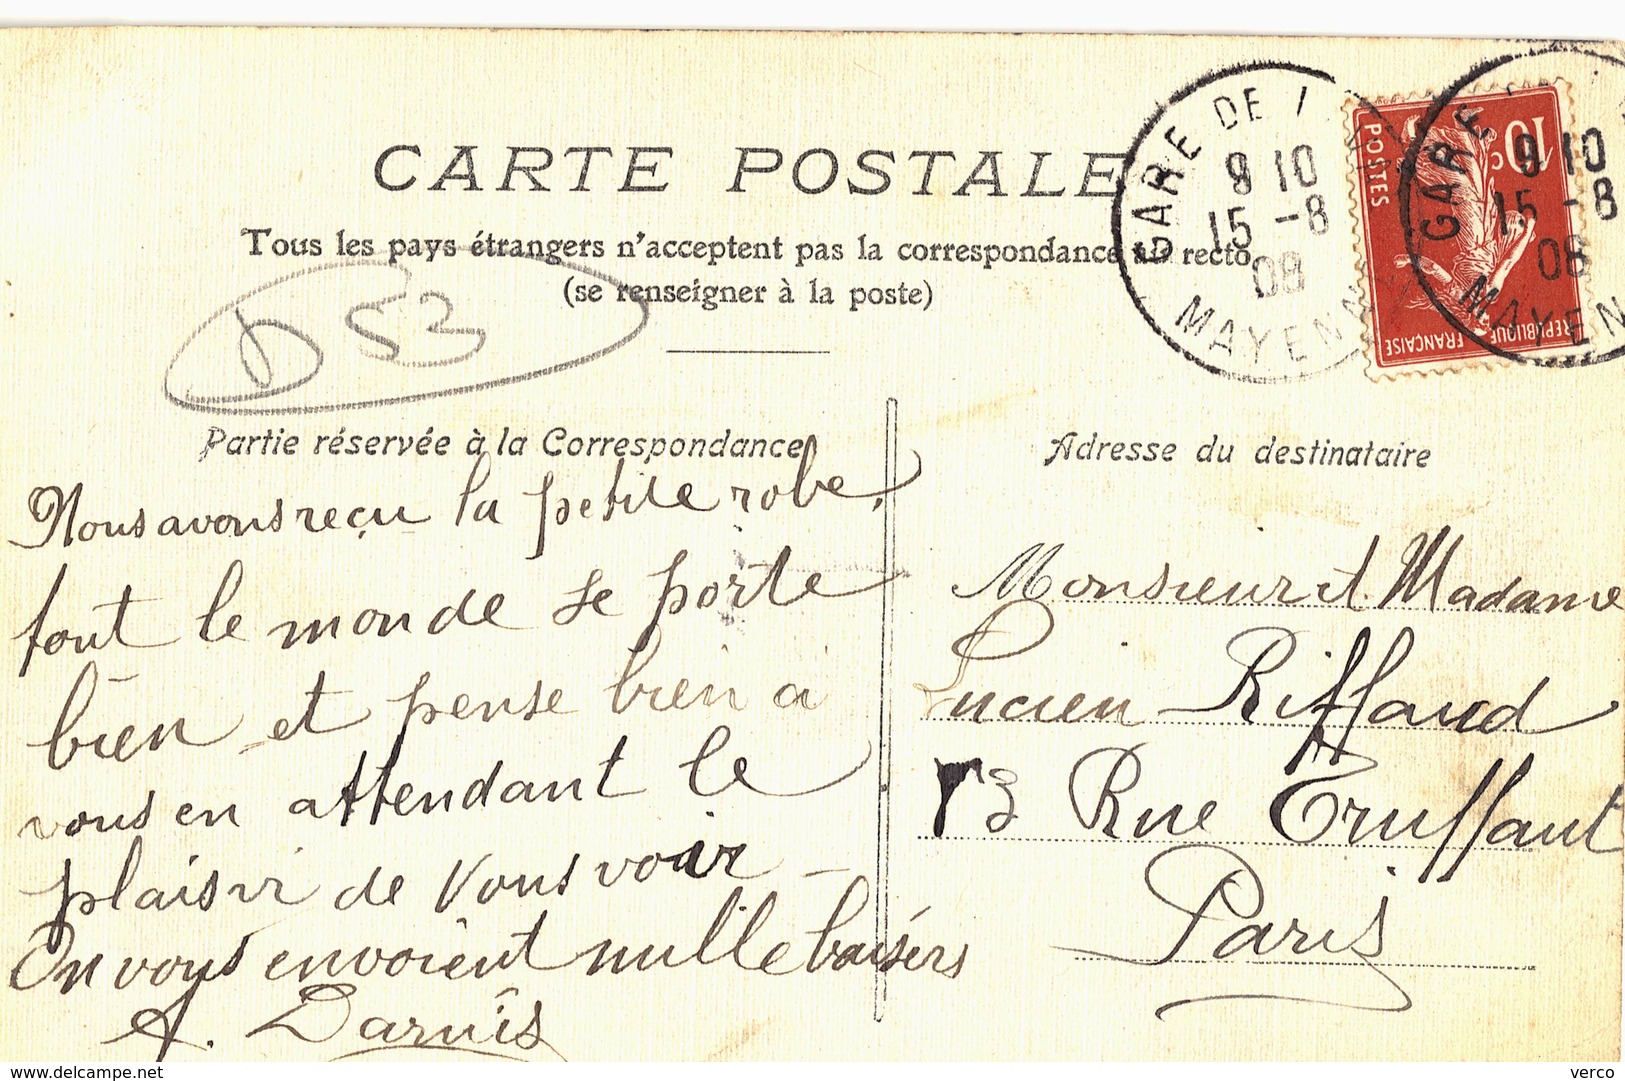 CARTE POSTALE
Tous les pays étrangers n'acceptent pas la correspondance au recto
(se renseigner à la poste)
GARE DE
9 10
15 -8
08
MAYENNE
10 c
POSTES
REPUBLIQUE FRANÇAISE
GARE
9 10
15 -8
08
MAYEN
D 53
Partie réservée à la Correspondance
Nous avons reçu la petite robe,
tout le monde se porte
bien et pense bien à
vous en attendant le
plaisir de vous voir
On vous envoient mille baisérs
A. Darnis
Adresse du destinataire
Monsieur et Madame
Lucien Riffaud
73 Rue Truffaut
Paris
delcampe.net
verco